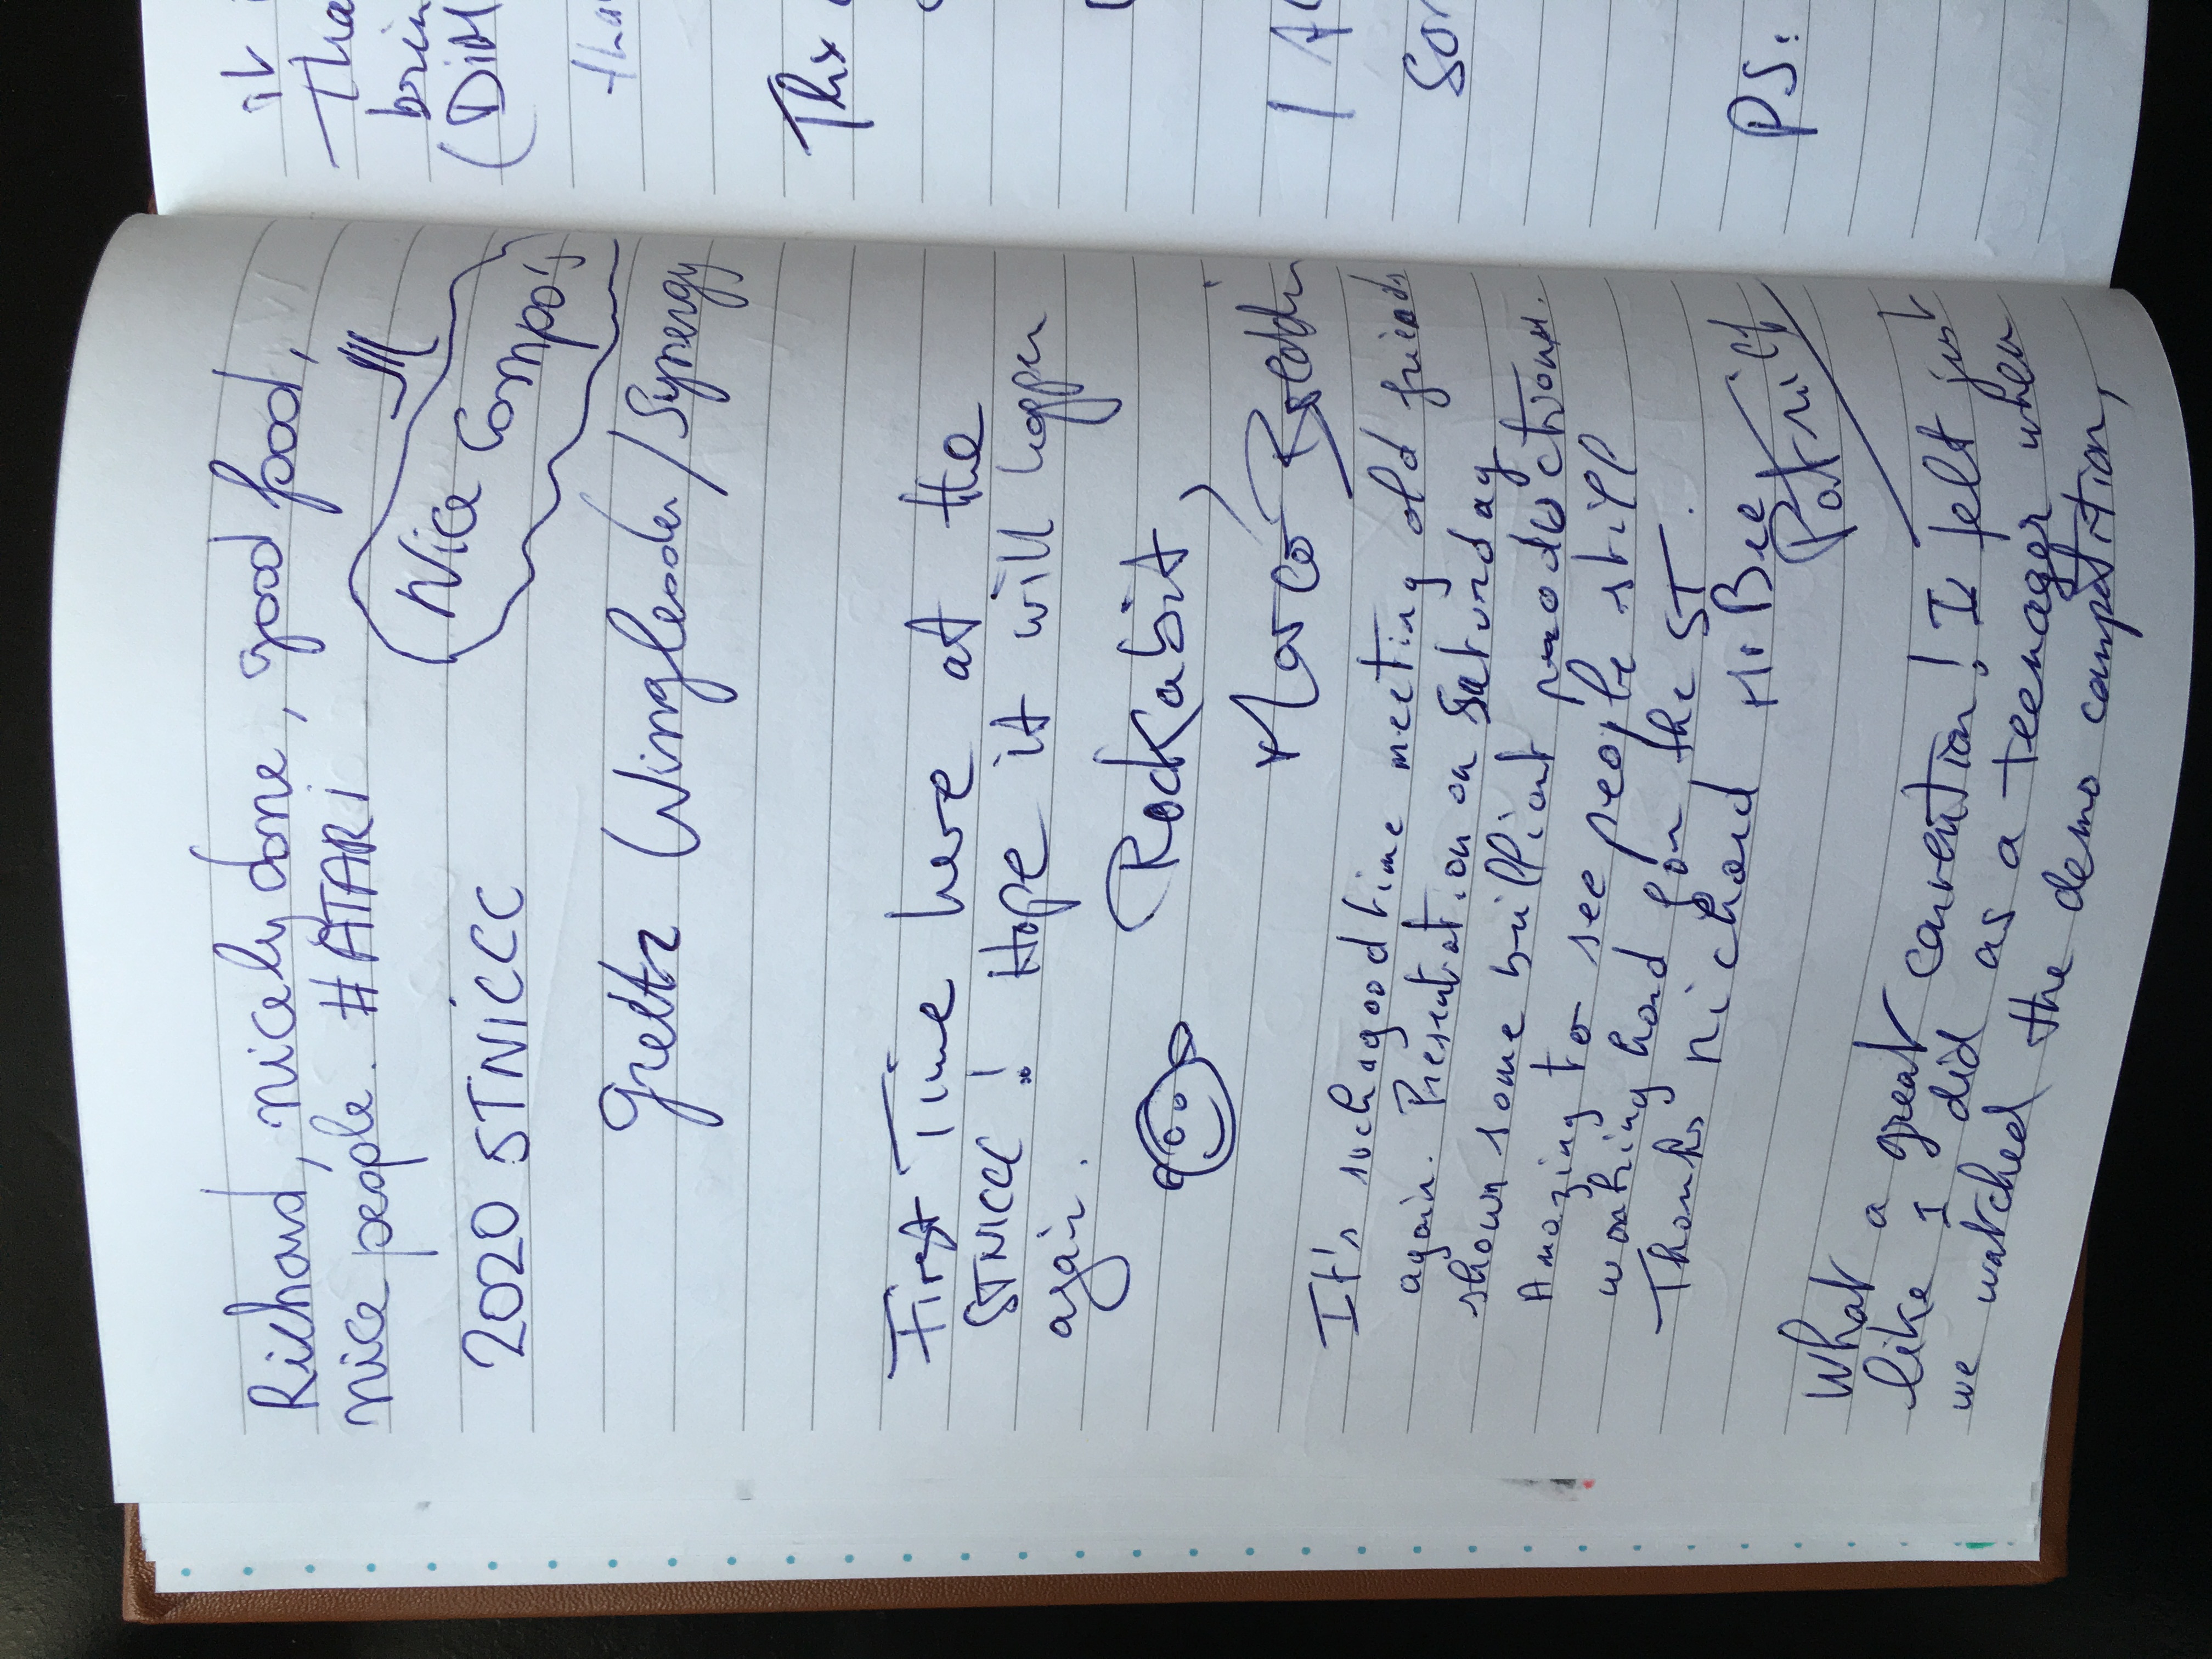 Richard, nicely done, good food,
nice people. #ATARI
Nice Compo's
2020 STNICCC
Greetz Wingleader/Synergy
First Time here at the
STNICCC! Hope it will happen
again.
Rockabit
Marco
It's such a good time meeting old friends
again. Presentation on Saturday
shown some brilliant productions.
Amazing to see people still
working hard for the ST.
Thanks richard Mr Bee
Patrick
What a great convention! I felt just
like I did as a teenager when
we watched the demo competition,
it
Tha
brin
(DiM
tha
This
I
Sor
PS: